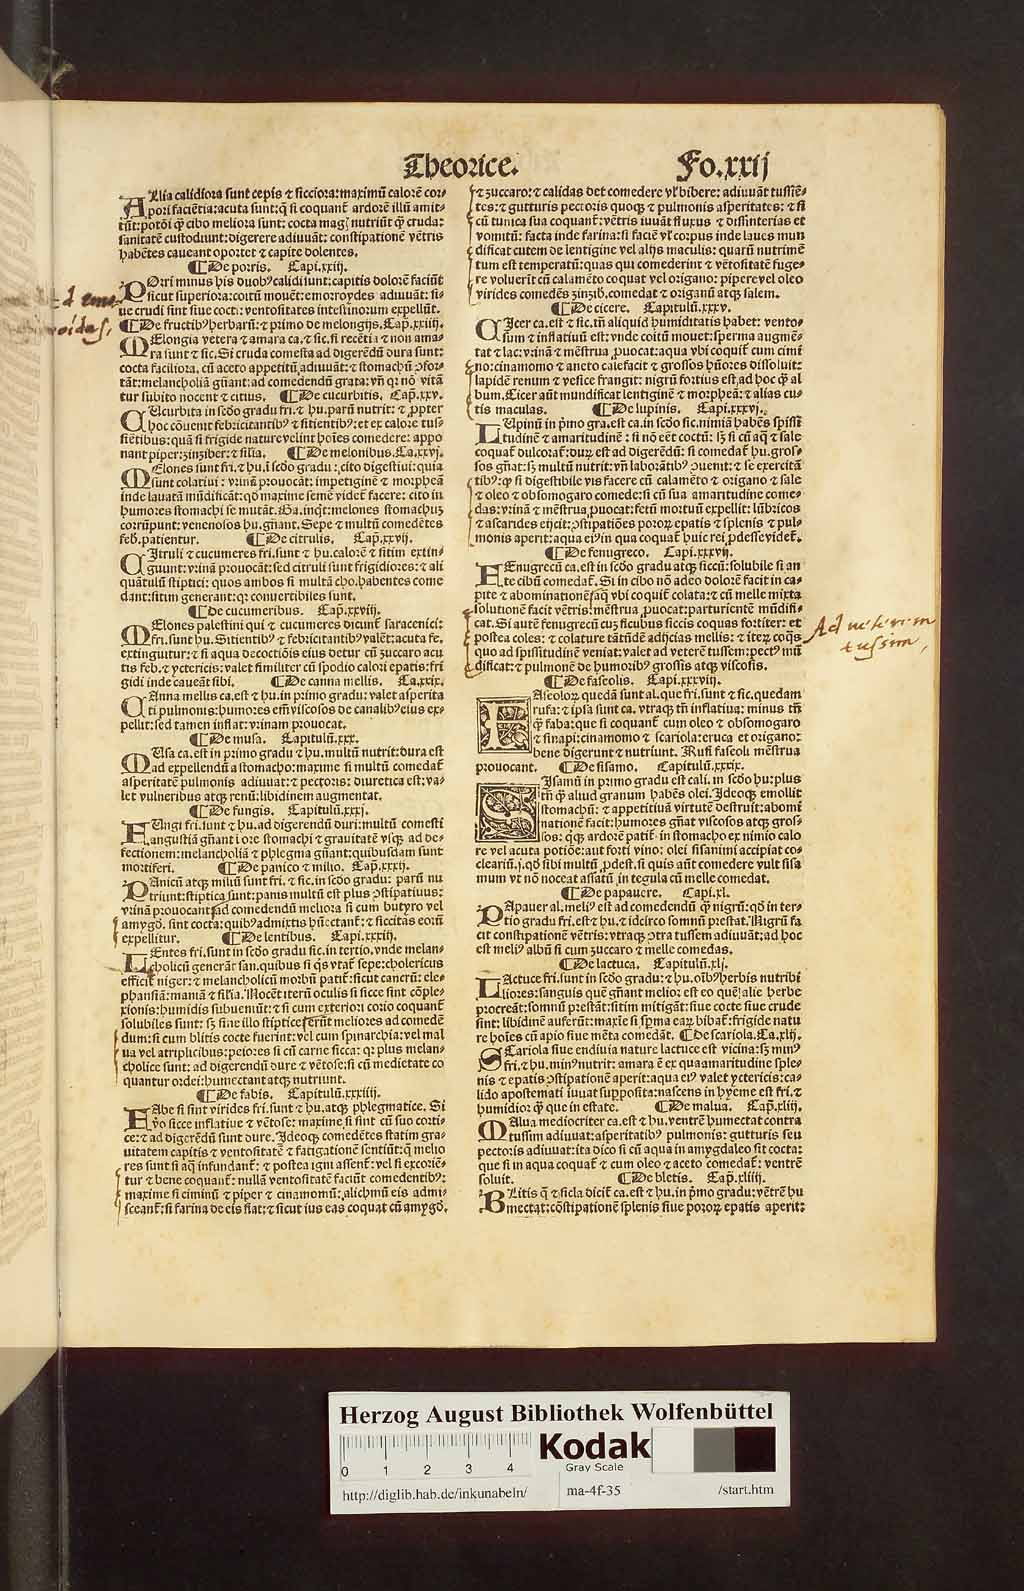 Theorice. Fo.xxij
Allia calidiora sunt cepis ⁊ sicciora: maximũ calorẽ cor-
pori faciẽtia: acuta sunt: q̃ si coquant̃ ardorẽ illũ amit-
tũt: potõi q̃ cibo meliora sunt: cocta magꝭ nutriũt q̃ cruda:
sanitatẽ custodiunt: digerere adiuuãt: constipationẽ vẽtris
habẽtes caueant oportet ⁊ capite dolentes.
¶De porris. Capi.xxiij.
Porri minus his duobꝰ calidi sunt: capitis dolorẽ faciũt
sicut superiora: coitũ mouẽt: emorroydes adiuuãt: si-
ue crudi sint siue cocti: ventositates intestinorum expellũt.
¶De fructibꝰ herbarũ: ⁊ primo de melongijs. Cap̃.xxiiij.
Melongia vetera ⁊ amara ca. ⁊ sic. si recẽtia ⁊ non ama-
ra sunt ⁊ sic. Si cruda comesta ad digerẽdũ dura sunt:
cocta faciliora. cũ aceto appetitũ adiuuãt: ⁊ stomachũ ꝯfor-
tãt: melancholiã gñant: ad comedendũ grata: vñ q̃ nõ vitã
tur subito nocent ⁊ citius. ¶De cucurbitis. Cap̃.xxv.
Cucurbita in scõdo gradu fri. ⁊ hu. parũ nutrit: ⁊ ꝓpter
hoc cõuenit febricitantibꝰ ⁊ sitientibꝰ: et ex calore tus-
sietibus: quã si frigide nature velint hoies comedere: appo
nant piper: zinziber: ⁊ silia. ¶De melonibus. Ca.xxvj.
Melones sunt fri. ⁊ hu. i scõdo gradu: cito digestiui: quia
sunt colatiui: vrinã prouocãt: impetiginẽ ⁊ morpheã
inde lauatã mũdificãt: qđ maxime semẽ videt̃ facere: cito in
humores stomachi se mutãt. Ga. inqt: melones stomachuꝫ
corrũpunt: venenosos hu. gñant. Sepe ⁊ multũ comedẽtes
feb. patientur. ¶De citrulis. Cap̃.xxvij.
Citruli ⁊ cucumeres fri. sunt ⁊ hu. calorẽ ⁊ sitim extin-
guunt: vrinã prouocãt: sed citruli sunt frigidiores: ⁊ ali
quãtulũ stiptici: quos ambos si multã cho. habentes come
dant: sitim generant: q: conuertibiles sunt.
¶De cucumeribus. Cap̃.xxviij.
Melones palestini qui ⁊ cucumeres dicunt̃ saracenici:
fri. sunt hu. Sitientibꝰ ⁊ febricitantibꝰ valẽt: acuta fe.
extinguitur: ⁊ si aqua decoctiõis eius detur cũ zuccaro acu
tis feb. ⁊ yctericis: valet similiter cũ spodio calori epatis: fri
gidi inde caueãt sibi. ¶De canna mellis. Ca.xxix.
Canna mellis ca. est ⁊ hu. in primo gradu: valet asperita
ti pulmonis: humores em̃ viscosos de canalibꝰ eius ex-
pellit: sed tamen inflat: vrinam prouocat.
¶De musa. Capitulũ.xxx.
Musa ca. est in primo gradu ⁊ hu. multũ nutrit: dura est
ad expellendũ a stomacho: maxime si multũ comedat̃
asperitatẽ pulmonis adiuuat: ⁊ pectoris: diuretica est: va-
let vulneribus atqꝫ renũ: libidinem augmentat.
¶De fungis. Capitulũ.xxxj.
Fungi fri. sunt ⁊ hu. ad digerendũ duri: multũ comesti
angustiã gñant i ore stomachi ⁊ grauitatẽ vsqꝫ ad de-
fectionem: melancholiã ⁊ phlegma gñant: quibusdam sunt
mortiferi. ¶De panico ⁊ milio. Cap̃.xxxij.
Panicũ atqꝫ miliũ sunt fri. ⁊ sic. in scõdo gradu: parũ nu
triunt: stiptica sunt: panis multũ est plus ꝯstipatiuus:
vrinã prouocant: ad comedendũ meliora si cum butyro vel
amygđ. sint cocta: quibꝰ admixtis hũectant̃: ⁊ siccitas eorũ
expellitur. ¶De lentibus. Capi.xxxiij.
Lentes fri. sunt in scõdo gradu sic. in tertio. vnde melan-
cholicũ generãt san. quibus si qs vtat̃ sepe: cholericus
efficit̃ niger: ⁊ melancholicũ morbũ patit̃: sicut cancrũ: ele-
phansiã: maniã ⁊ silia. Nocẽt iterũ oculis si sicce sint cõple-
xionis: humidis subueniũt: ⁊ si cum exteriori corio coquant̃
solubiles sunt: sꝫ sine illo stiptice: erũt meliores ad comedẽ
dum: si cum blitis cocte fuerint: vel cum spinarchia: vel mal
ua vel atriplicibus: peiores si cũ carne sicca: qꝛ plus melan-
cholice sunt: ad digerendũ dure ⁊ vẽtose: si cũ medietate co
quantur ordei: humectant atqꝫ nutriunt.
¶De fabis. Capitulũ.xxxiiij.
Fabe si sint virides fri. sunt ⁊ hu. atqꝫ phlegmatice. Si
vo sicce inflatiue ⁊ vẽtose: maxime si sint cũ suo corti-
ce: ⁊ ad digerẽdũ sunt dure. Ideoqꝫ comedẽtes statim gra-
uitatem capitis ⁊ ventositatẽ ⁊ fatigationẽ sentiũt: q̃ melio
res sunt si aq̃ infundant̃: ⁊ postea igni assent̃: vel si excoriẽ-
tur ⁊ bene coquant̃: nullã ventositatẽ faciũt comedentibꝰ:
maxime si ciminũ ⁊ piper ⁊ cinamomũ: alichmũ eis admi-
sceant̃: si farina de eis fiat: ⁊ sicut ius eas coquat cũ amygđ.
⁊ zuccaro: ⁊ calidas det comedere vl bibere: adiuuãt tussiẽ-
tes: ⁊ gutturis pectoris quoqꝫ ⁊ pulmonis asperitates: ⁊ si
cũ tunica sua coquant̃: vẽtris iuuãt fluxus ⁊ dissinterias et
vomitũ: facta inde farina: si faciẽ vl corpus inde laues mun
dificat cutem de lentigine vel alijs maculis: quarũ nutrimẽ
tum est temperatũ: quas qui comederint ⁊ vẽtositatẽ fuge-
re voluerit cũ calamẽto coquat vel origano: pipere vel oleo
virides comedẽs zinzib. comedat ⁊ origanũ atqꝫ salem.
¶De cicere. Capitulũ.xxxv.
Cicer ca. est ⁊ sic. tñ aliquid humiditatis habet: vento-
sum ⁊ inflatiuũ est: vnde coitũ mouet: sperma augmẽ-
tat ⁊ lac: vrinã ⁊ mẽstrua ꝓuocat: aqua vbi coquit̃ cum cimi
no: cinamomo ⁊ aneto calefacit ⁊ grossos hũores dissoluit:
lapidẽ renum ⁊ vesice frangit: nigrũ fortius est ad hoc q̃ al
bum. Cicer aũt mundificat lentiginẽ ⁊ morpheã: ⁊ alias cu-
tis maculas. ¶De lupinis. Capi.xxxvj.
Lupinũ in pmo gra. est ca. in scõdo sic. nimiã habẽs spissi
tudinẽ ⁊ amaritudinẽ: si nõ eet coctũ: sꝫ si cũ aq̃ ⁊ sale
coquat̃ dulcorat̃: duꝝ est ad digerẽdũ: si comedat̃ hu. gros-
sos gñat: sꝫ multũ nutrit: vñ laborãtibꝰ ꝓuenit: ⁊ se exercitã
tibꝰ: q̃ si digestibile vis facere cũ calamẽto ⁊ origano ⁊ sale
⁊ oleo ⁊ obsomogaro comede: si cũ sua amaritudine come-
das: vrinã ⁊ mẽstrua ꝓuocat: fetũ mortuũ expellit: lũbricos
⁊ ascarides eijcit: ꝯstipatiões poroꝝ epatis ⁊ splenis ⁊ pul-
monis aperit: aqua eiꝰ in qua coquat̃ huic rei ꝓdesse videt̃.
¶De fenugreco. Capi.xxxvij.
Fenugrecũ ca. est in scõdo gradu atqꝫ siccũ: solubile si an
te cibũ comedat̃. Si in cibo nõ adeo dolorẽ facit in ca-
pite ⁊ abominationẽ: aq̃ vbi coquit̃ colata: ⁊ cũ melle mixta
solutionẽ facit vẽtris: mẽstrua ꝓuocat: parturientẽ mũdifi-
cat. Si autẽ fenugrecũ cuꝫ ficubus siccis coquas fortiter: et
postea coles: ⁊ colature tãtũdẽ adijcias mellis: ⁊ iteꝝ coqs
quo ad spissitudinẽ veniat: valet ad veterẽ tussem: pectꝰ mũ
dificat: ⁊ pulmonẽ de humoribꝰ grossis atqꝫ viscosis.
¶De faseolis. Capi.xxxviij.
Faseoloꝝ quedã sunt al. que fri. sunt ⁊ sic. quedam
rufa: ⁊ ipsa sunt ca. vtraqꝫ tñ inflatiua: minus tñ
q̃ faba: que si coquant̃ cum oleo ⁊ obsomogaro
⁊ sinapi: cinamomo ⁊ scariola: eruca et origano:
bene digerunt ⁊ nutriunt. Rufi faseoli mẽstrua
prouocant. ¶De sisamo. Capitulũ.xxxix.
Sisamũ in primo gradu est cali. in scõdo hu: plus
tñ q̃ aliud granum habẽs olei. Ideoqꝫ emollit
stomachũ: ⁊ appetitiuã virtutẽ destruit: abomi
nationẽ facit: humores gñat viscosos atqꝫ gros-
sos: qꝫ ardorẽ patit̃ in stomacho ex nimio calo
re vel acuta potiõe: aut forti vino: olei sisamini accipiat co-
clearium. j. qđ sibi multũ ꝓdest. si quis aũt comedere vult sisa
mum vt nõ noceat assatũ in tegula cũ melle comedat.
¶De papauere. Capi.xl.
Papauer al. meliꝰ est ad comedendũ q̃ nigrũ: qđ in ter-
tio gradu fri. est ⁊ hu. ⁊ idcirco somnũ prestat. Nigrũ fa
cit constipationẽ vẽtris: vtraqꝫ ꝯtra tussem adiuuãt: ad hoc
est meliꝰ albũ si cum zuccaro ⁊ melle comedas.
¶De lactuca. Capitulũ.xlj.
Lactuce fri. sunt in scõdo gradu: ⁊ hu. oibꝰ herbis nutribi
liores: sanguis quẽ gñant melior est eo quẽ alie herbe
procreãt: somnũ prestãt: sitim mitigãt: siue cocte siue crude
sint: libidinẽ auferũt: maxie si spma eaꝝ bibat̃: frigide natu
re hoies cũ apio siue mẽta comedãt. ¶De scariola. Ca.xlij.
Scariola siue endiuia nature lactuce est vicina: sꝫ minꝰ
fri. ⁊ hu. minꝰ nutrit: amara ẽ ex qua amaritudine sple-
nis ⁊ epatis ꝯstipationẽ aperit: aqua eiꝰ valet yctericis: ca-
lido apostemati iuuat supposita: nascens in hyeme est fri. ⁊
humidior q̃ que in estate. ¶De malua. Cap̃.xliij.
Malua mediocriter ca. est ⁊ hu. ventrẽ humectat contra
tussim adiuuat: asperitatibꝰ pulmonis: gutturis seu
pectoris adiuuat: ita dico si cũ aqua in amygdaleo sit cocta:
que si in aqua coquat̃ ⁊ cum oleo ⁊ aceto comedat̃: ventrẽ
soluit. ¶De bletis. Cap̃.xliiij.
Blitis q̃ ⁊ sicla dicit̃ ca. est ⁊ hu. in pmo gradu: vẽtrẽ hu
mectat: cõstipationẽ splenis siue poroꝝ epatis aperit:
Ad veterem
tussim,
Herzog August Bibliothek Wolfenbüttel
0 1 2 3 4
Kodak
Gray Scale
http://diglib.hab.de/inkunabeln/ ma-4f-35 /start.htm